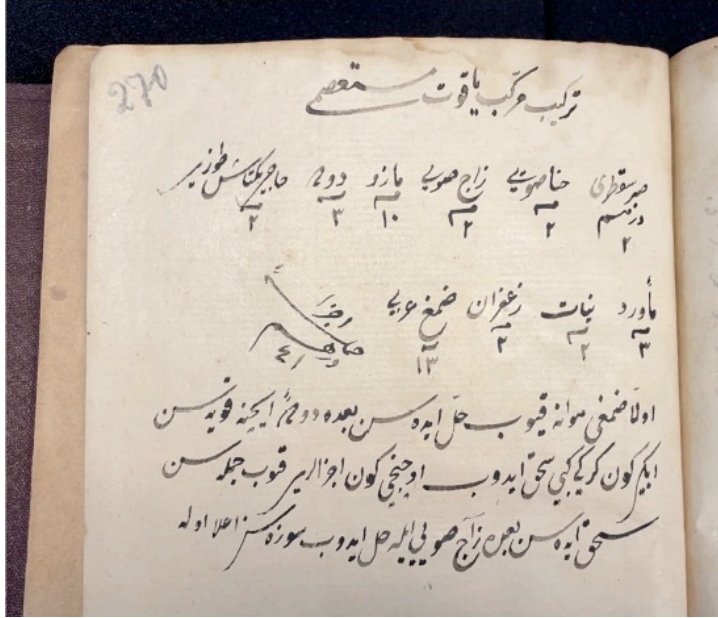 270
تركيب مركب ياقوت مستعصمى
صبر سقطرى حنا صويى زاج صويى مازو دوده حاجى بكتاش طوزى
درهم
٢ ٢ ٢ ١٠ ٣ ٢
مأورد نبات زعفران ضمغ عربى
٣ ٢ ٢ ١٣
درهم ٤١
اولا ضمغى هوانه قيوب حل ايده سن بعده دوده ايچنه قويه سن
ايكى كون كركى كبى سحق ايدوب اوچنجى كون اجزالرى قيوب جمله سن
سحق ايده سن بعده زاج صويى ايله حل ايدوب سوزه سز اعلا اوله